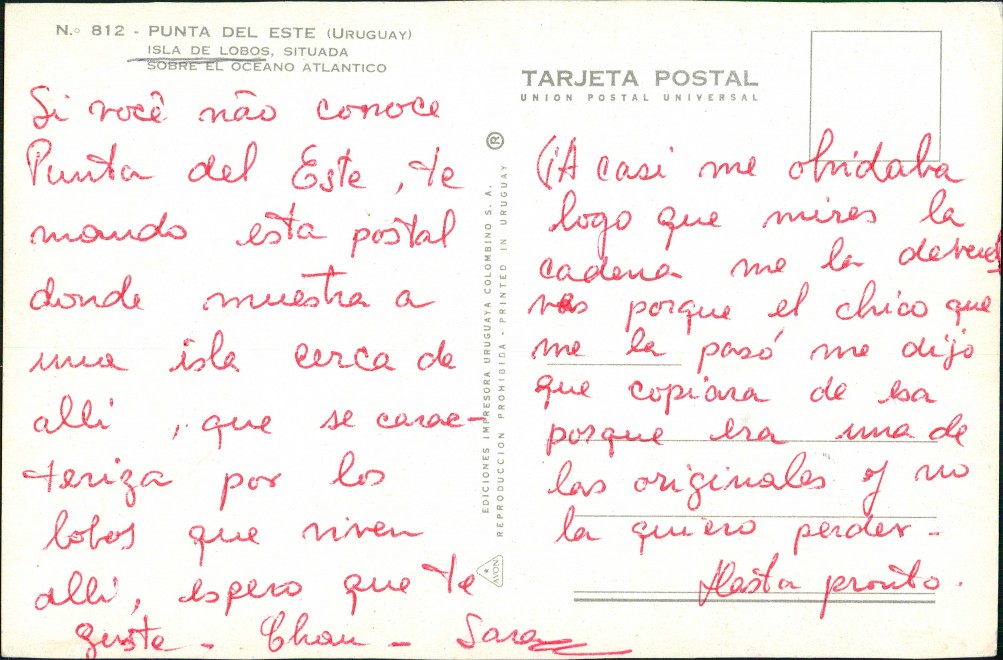 N.º 812 - PUNTA DEL ESTE (URUGUAY)
ISLA DE LOBOS, SITUADA
SOBRE EL OCEANO ATLANTICO
Si você não conoce
Punta del Este, te
mando esta postal
donde muestra a
una isla cerca de
alli, que se carac-
teriza por los
lobos que viven
alli, espero que te
guste - Chau - Sara
EDICIONES IMPRESORA URUGUAYA COLOMBINO S. A.
REPRODUCCION PROHIBIDA - PRINTED IN URUGUAY
®
AVON
TARJETA POSTAL
UNION POSTAL UNIVERSAL
(¡A casi me olvidaba
logo que mires la
cadena me la devuel
vas porque el chico que
me la pasó me dijo
que copiara de esa
porque era una de
las originales y no
la quiero perder -
Hasta pronto.